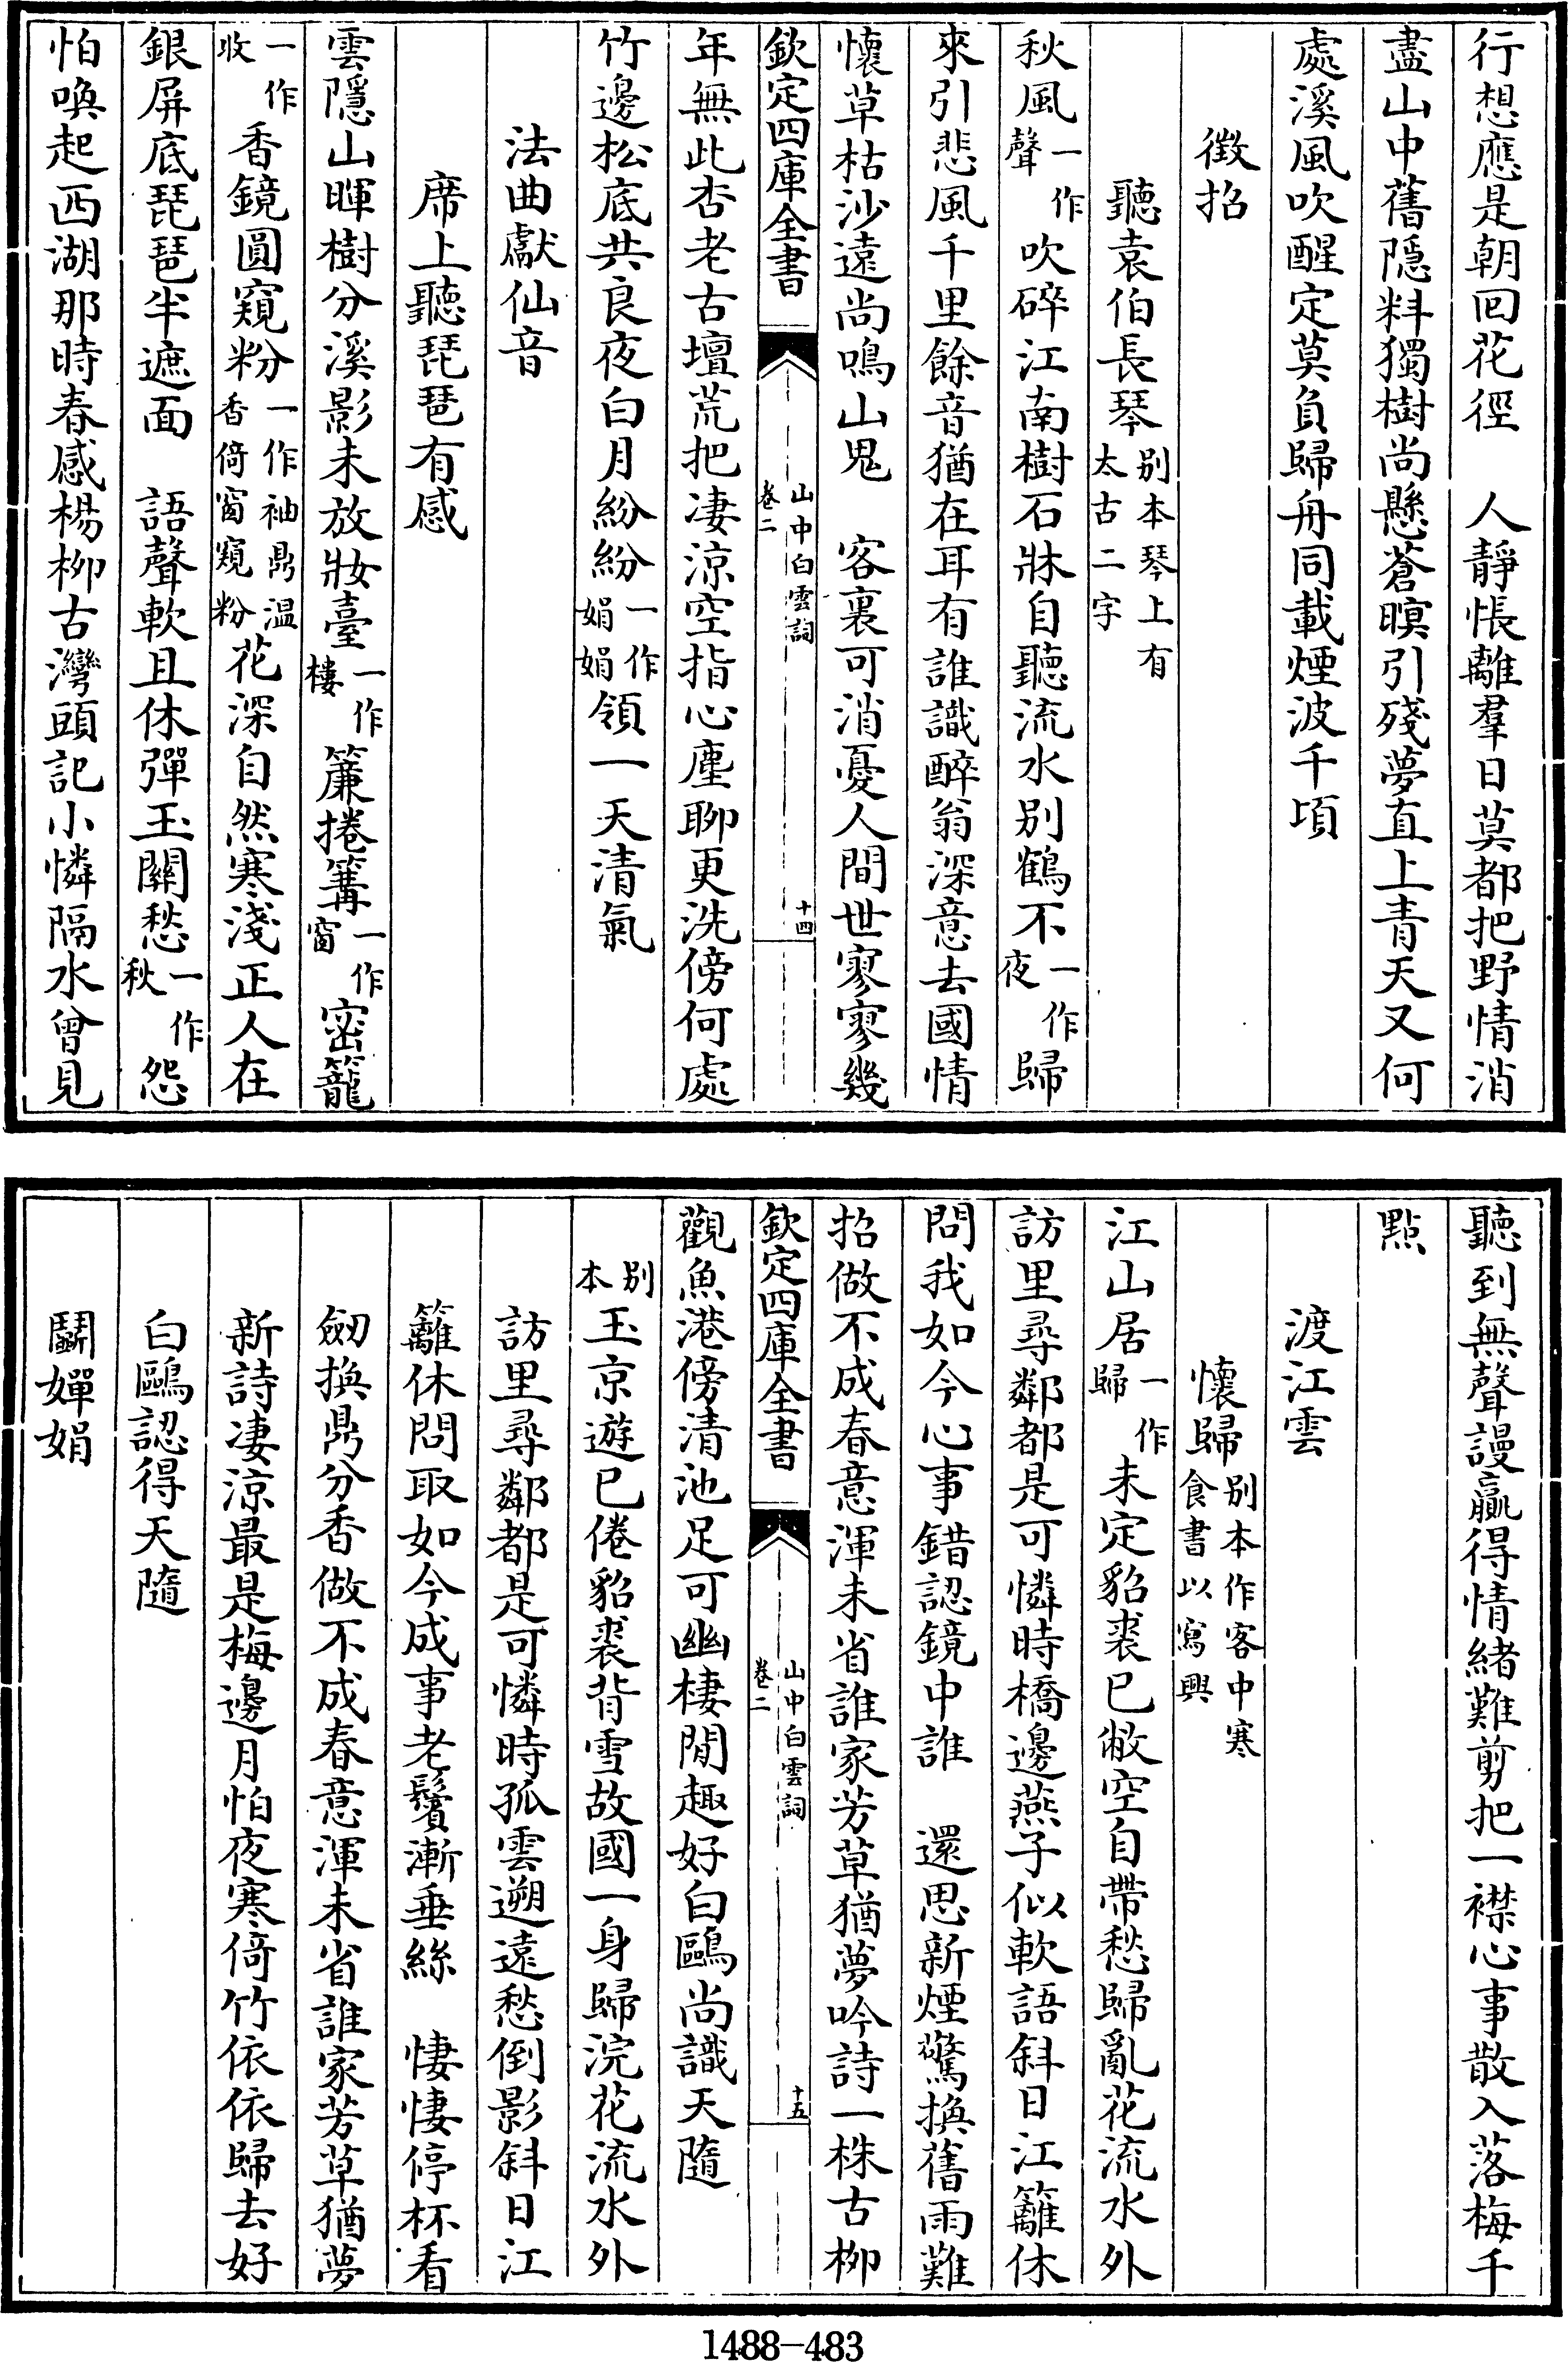 行想應是朝回花徑　人靜悵離羣日莫都把野情消
盡山中舊隱料獨樹尚懸蒼暝引殘夢直上青天又何
處溪風吹醒定莫負歸舟同載煙波千頃
徵招
聽袁伯長琴别本琴上有太古二字
秋風一作聲吹碎江南樹石牀自聽流水别鶴不一作夜歸
來引悲風千里餘音猶在耳有誰識醉翁深意去國情
懷草枯沙遠尚鳴山鬼　客裏可消憂人間世寥寥幾
欽定四庫全書
山中白雲詞
卷二
十四
年無此杏老古壇荒把淒涼空指心塵聊更洗傍何處
竹邊松底共良夜白月紛紛一作娟娟領一天清氣
法曲獻仙音
席上聽琵琶有感
雲隱山暉樹分溪影未放妝臺一作樓簾捲篝一作窗密籠
一作收香鏡圓窺粉一作袖鼎温香倚窗窺粉花深自然寒淺正人在
銀屏底琵琶半遮面　語聲軟且休彈玉關愁一作秋怨
怕喚起西湖那時春感楊柳古灣頭記小憐隔水曾見
聽到無聲謾贏得情緒難剪把一襟心事散入落梅千
點
渡江雲
懷歸别本作客中寒食書以寫興
江山居一作歸未定貂裘已敝空自帶愁歸亂花流水外
訪里尋鄰都是可憐時橋邊燕子似軟語斜日江籬休
問我如今心事錯認鏡中誰　還思新煙驚換舊雨難
招做不成春意渾未省誰家芳草猶夢吟詩一株古柳
欽定四庫全書
山中白雲詞
卷二
十五
觀魚港傍清池足可幽棲閒趣好白鷗尚識天隨
别本玉京遊已倦貂裘背雪故國一身歸浣花流水外
訪里尋鄰都是可憐時孤雲遡遠愁倒影斜日江
籬休問取如今成事老鬢漸垂絲　悽悽停杯看
劒換鼎分香做不成春意渾未省誰家芳草猶夢
新詩淒涼最是梅邊月怕夜寒倚竹依依歸去好
白鷗認得天隨
鬬嬋娟
1488－483